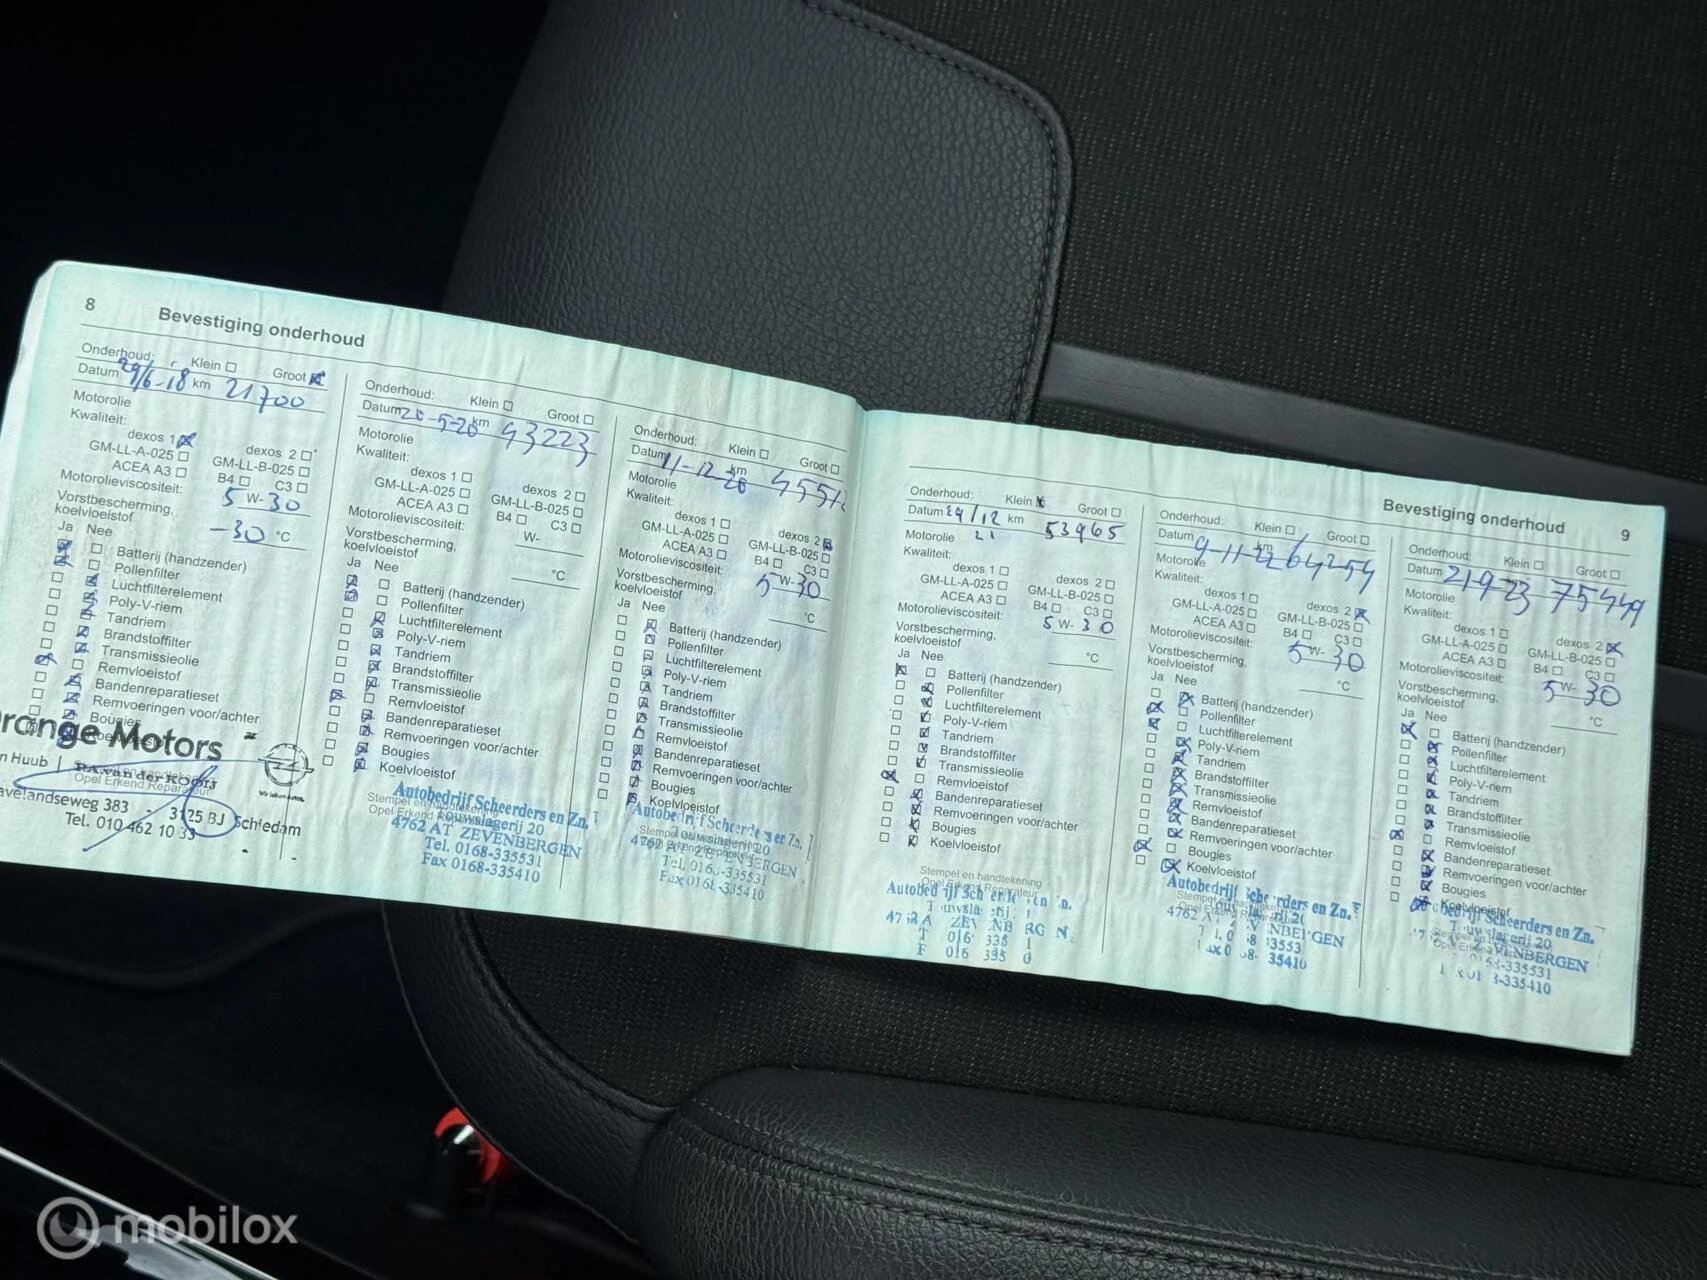 8 Bevestiging onderhoud
Onderhoud: Klein Groot
Datum 29/6-18 km 21700
Motorolie
Kwaliteit:
dexos 1 dexos 2
GM-LL-A-025 GM-LL-B-025
ACEA A3 B4 C3
Motorolieviscositeit: 5 W- 30
Vorstbescherming,
koelvloeistof -30 °C
Ja Nee
Batterij (handzender)
Pollenfilter
Luchtfilterelement
Poly-V-riem
Tandriem
Brandstoffilter
Transmissieolie
Remvloeistof
Bandenreparatieset
Remvoeringen voor/achter
Bougies
range Motors
n Huub | P.A. van der Kooij
Opel Erkend Reparateur
avelandseweg 383 - 3125 BJ Schiedam
Tel. 010 462 10 33
Onderhoud: Klein Groot
Datum 20-5-20 km 43223
Motorolie
Kwaliteit:
dexos 1 dexos 2
GM-LL-A-025 GM-LL-B-025
ACEA A3 B4 C3
Motorolieviscositeit: W-
Vorstbescherming,
koelvloeistof °C
Ja Nee
Batterij (handzender)
Pollenfilter
Luchtfilterelement
Poly-V-riem
Tandriem
Brandstoffilter
Transmissieolie
Remvloeistof
Bandenreparatieset
Remvoeringen voor/achter
Bougies
Koelvloeistof
Autobedrijf Scheerders en Zn.
Stempel en handtekening
Opel Erkend Reparateur
Touwslagerij 20
4762 AT ZEVENBERGEN
Tel. 0168-335531
Fax 0168-335410
Onderhoud: Klein Groot
Datum 11-12-20 km
Motorolie
Kwaliteit:
dexos 1 dexos 2
GM-LL-A-025 GM-LL-B-025
ACEA A3 B4 C3
Motorolieviscositeit: 5 W- 30
Vorstbescherming,
koelvloeistof °C
Ja Nee
Batterij (handzender)
Pollenfilter
Luchtfilterelement
Poly-V-riem
Tandriem
Brandstoffilter
Transmissieolie
Remvloeistof
Bandenreparatieset
Remvoeringen voor/achter
Bougies
Koelvloeistof
Autobedrijf Scheerders en Zn.
Stempel en handtekening
Touwslagerij 20
Opel Erkend Reparateur
4762 AT ZEVENBERGEN
Tel. 0168-335531
Fax 0168-335410
Bevestiging onderhoud 9
Onderhoud: Klein Groot
Datum 29/12 21 km 53965
Motorolie
Kwaliteit:
dexos 1 dexos 2
GM-LL-A-025 GM-LL-B-025
ACEA A3 B4 C3
Motorolieviscositeit: 5 W- 30
Vorstbescherming,
koelvloeistof °C
Ja Nee
Batterij (handzender)
Pollenfilter
Luchtfilterelement
Poly-V-riem
Tandriem
Brandstoffilter
Transmissieolie
Remvloeistof
Bandenreparatieset
Remvoeringen voor/achter
Bougies
Koelvloeistof
Stempel en handtekening
Opel Erkend Reparateur
Onderhoud: Klein Groot
Datum 9-11-22 km 64254
Motorolie
Kwaliteit:
dexos 1 dexos 2
GM-LL-A-025 GM-LL-B-025
ACEA A3 B4 C3
Motorolieviscositeit: 5 W- 30
Vorstbescherming,
koelvloeistof °C
Ja Nee
Batterij (handzender)
Pollenfilter
Luchtfilterelement
Poly-V-riem
Tandriem
Brandstoffilter
Transmissieolie
Remvloeistof
Bandenreparatieset
Remvoeringen voor/achter
Bougies
Koelvloeistof
Autobedrijf Scheerders en Zn.
Onderhoud: Klein Groot
Datum 21-9-23 75449
Motorolie
Kwaliteit:
dexos 1 dexos 2
GM-LL-A-025 GM-LL-B-025
ACEA A3 B4 C3
Motorolieviscositeit: 5 W- 30
Vorstbescherming,
koelvloeistof °C
Ja Nee
Batterij (handzender)
Pollenfilter
Luchtfilterelement
Poly-V-riem
Tandriem
Brandstoffilter
Transmissieolie
Remvloeistof
Bandenreparatieset
Remvoeringen voor/achter
Bougies
Koelvloeistof
Scheerders en Zn.
mobilox